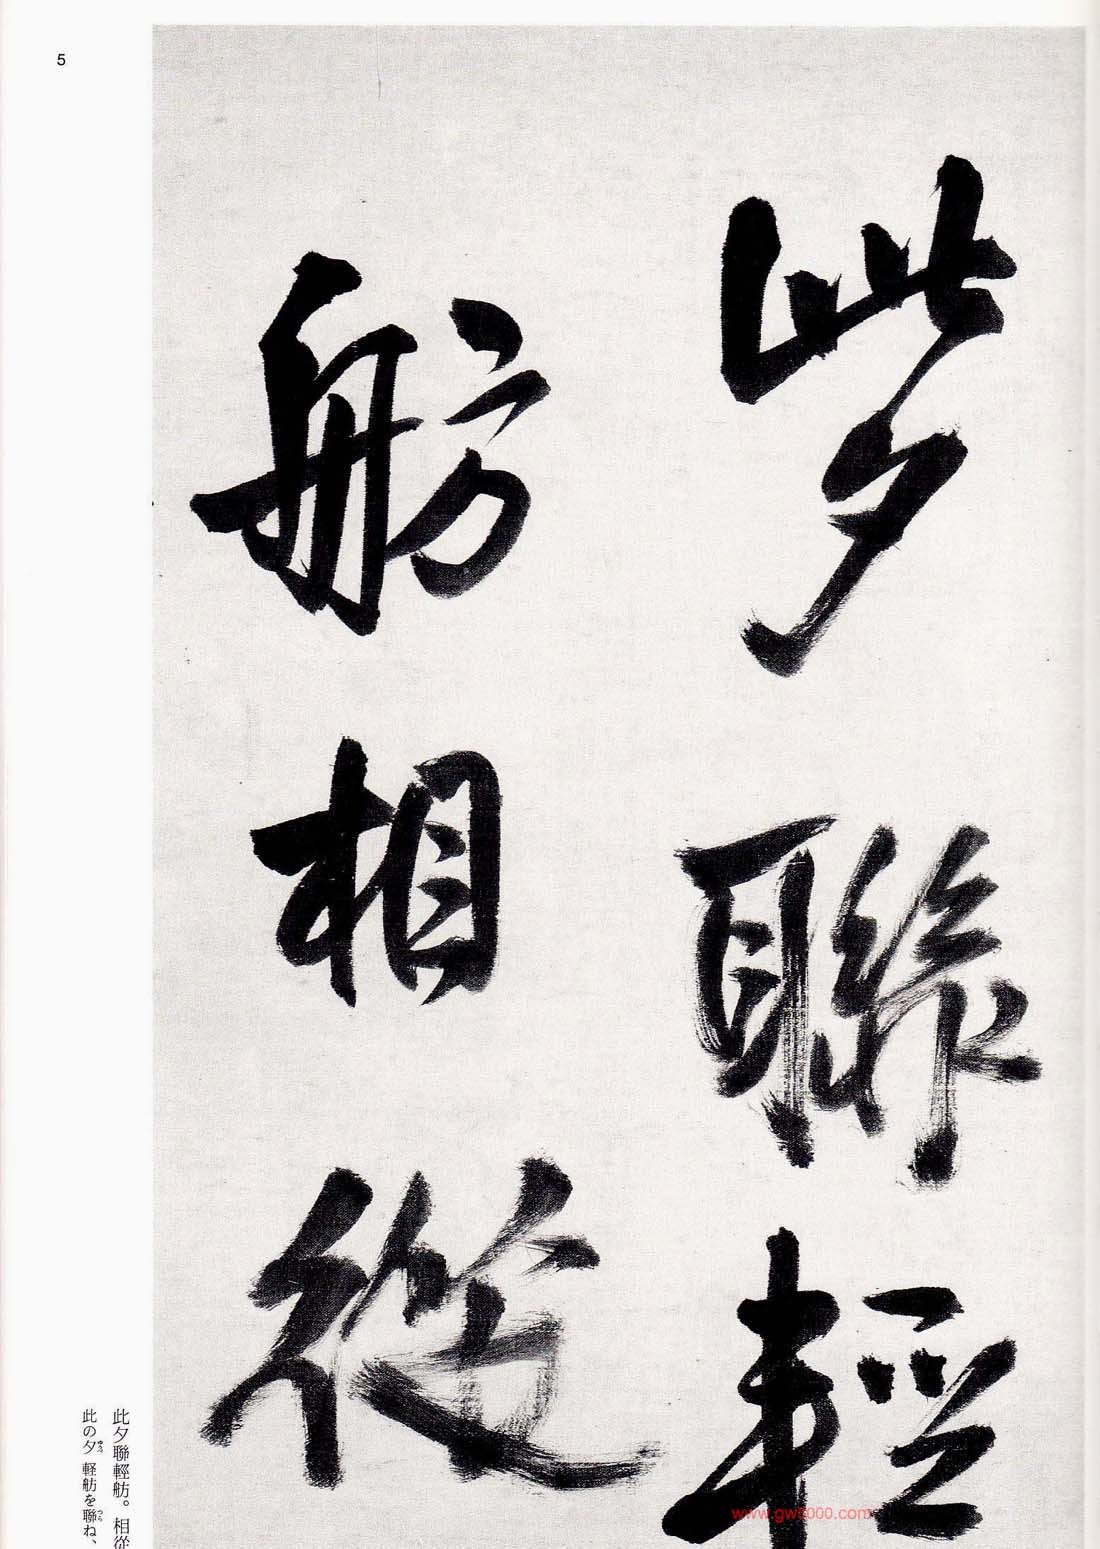 5
此夕聯輕
舫相從
此夕聯輕舫。相從
此の夕 軽舫を聯ね、
ゆうべ
つら
www.gw5000.com